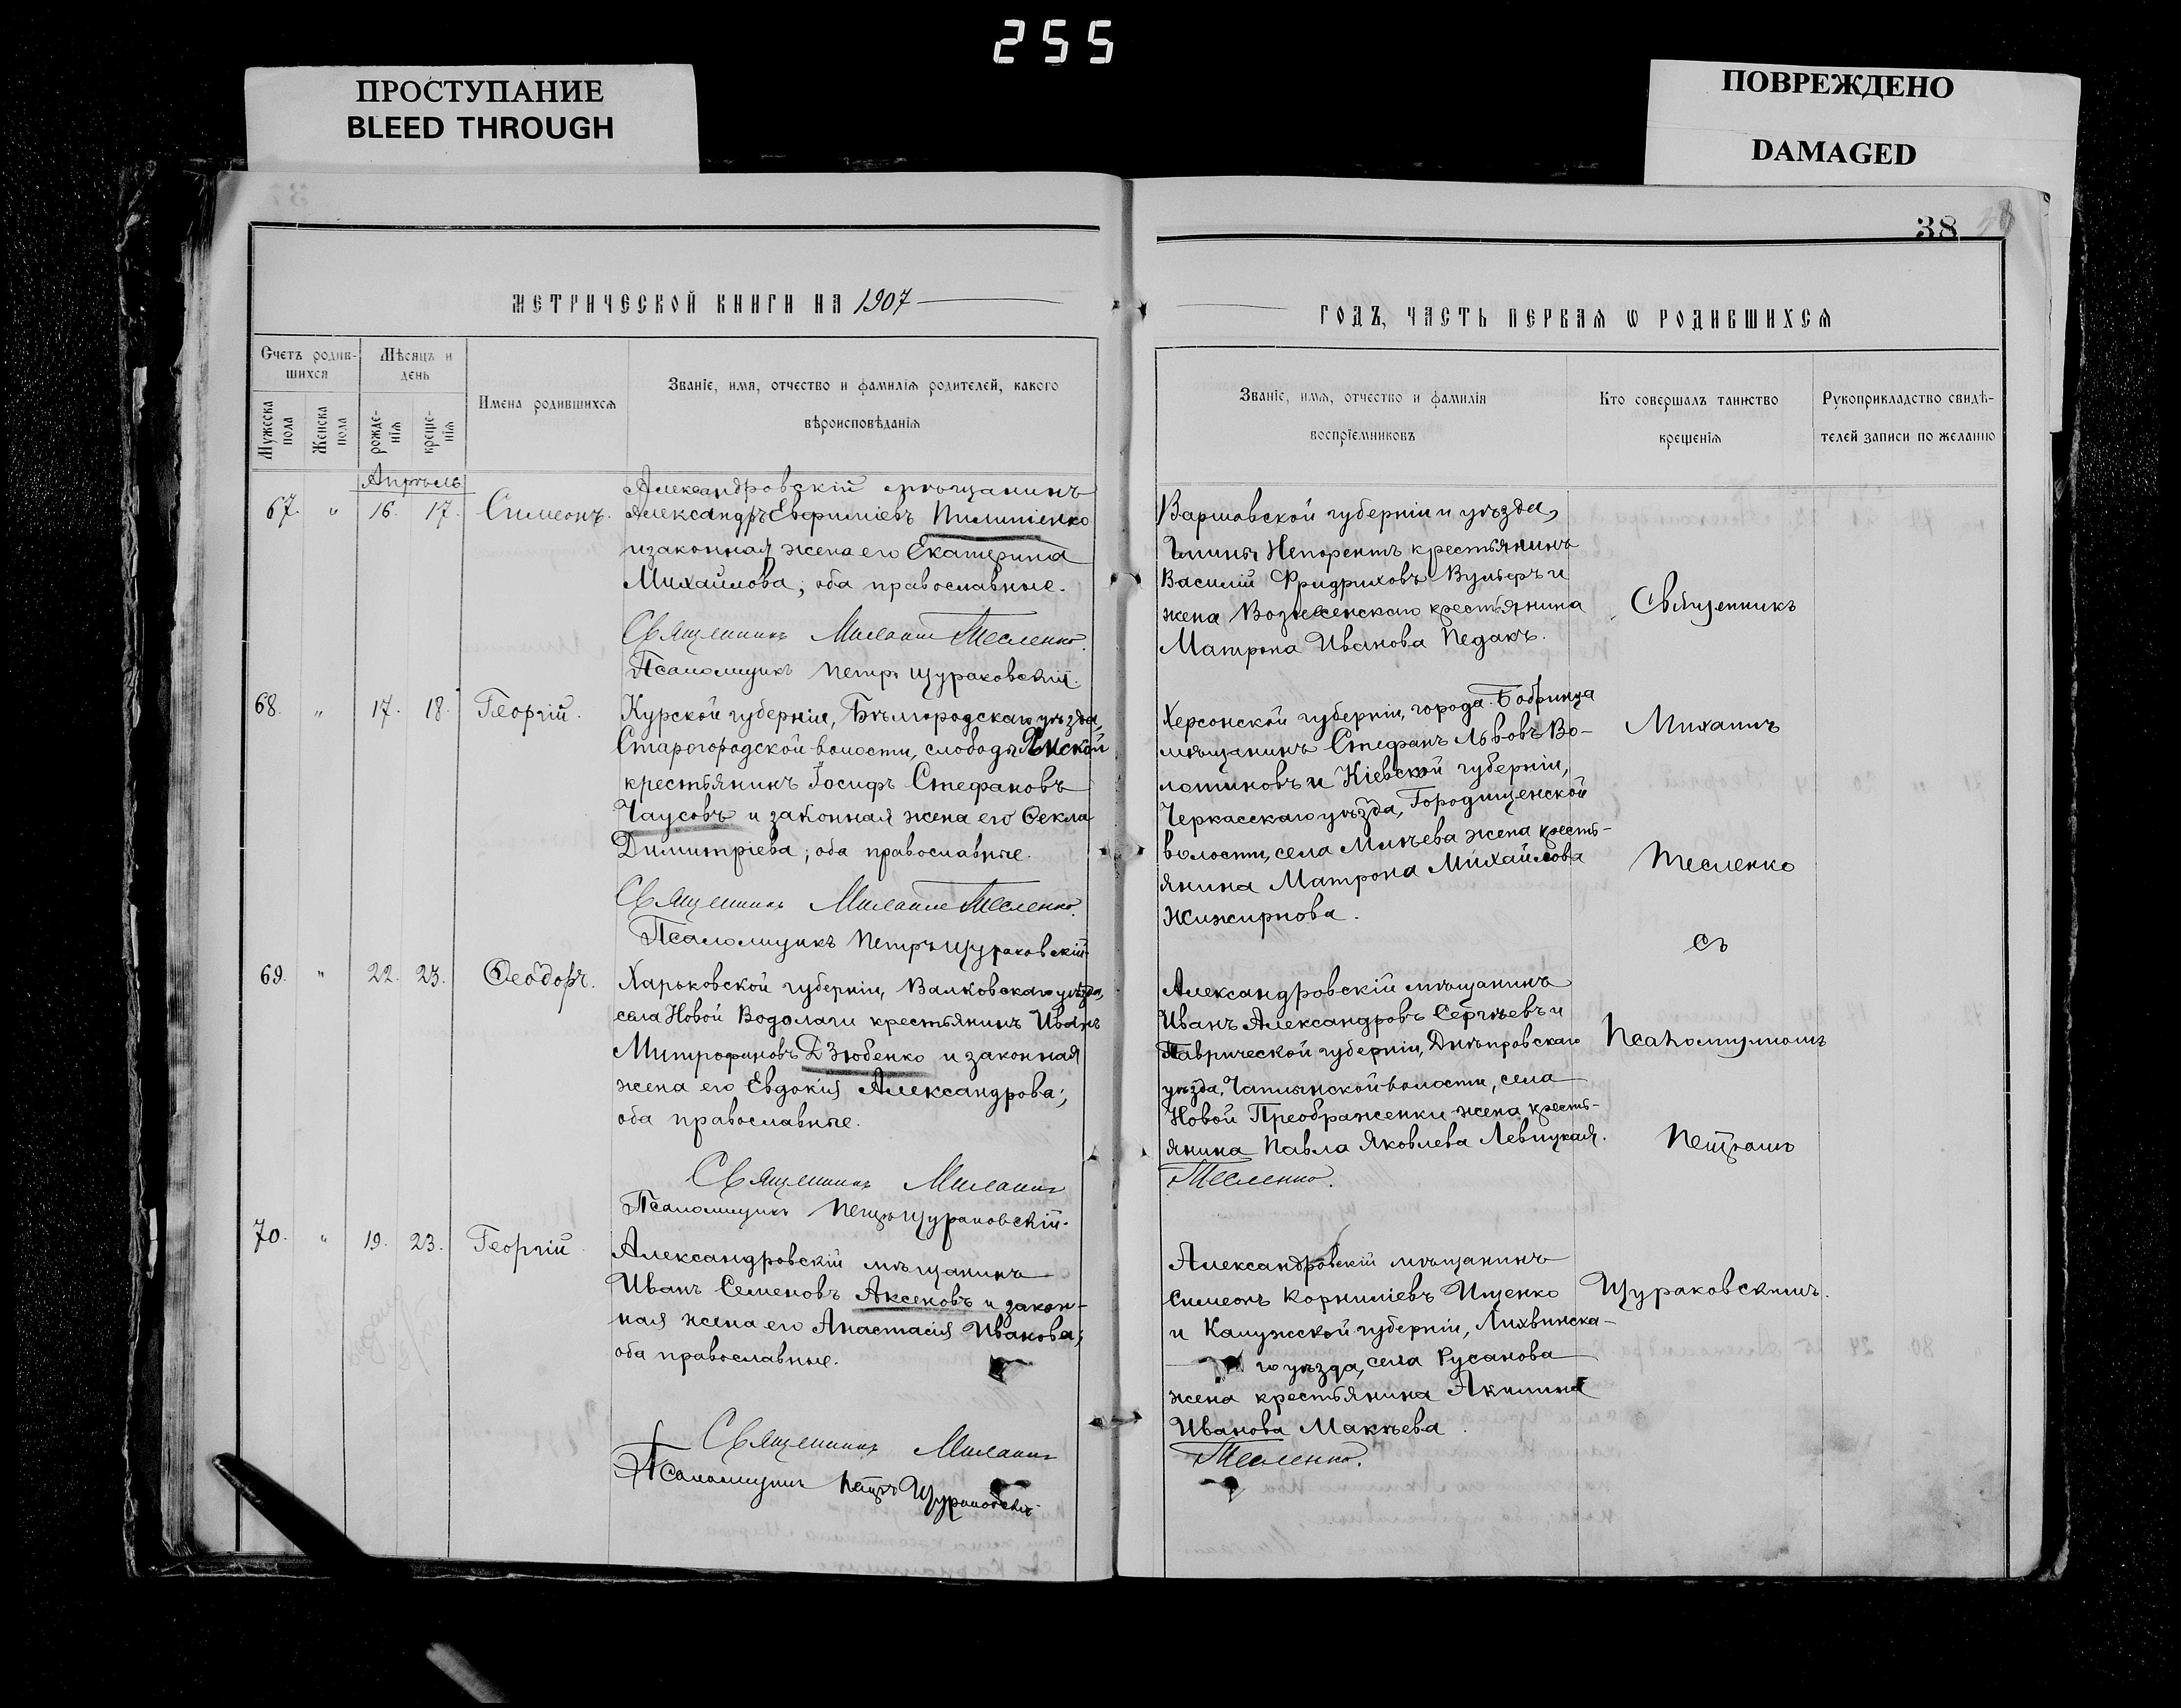 255
ПРОСТУПАНИЕ
BLEED THROUGH
ПОВРЕЖДЕНО
DAMAGED
38
МЕТРИЧЕСКОЙ КНИГИ НА 1907
Счетъ родив-
шихся
Мѣсяцъ и
день
Мужеска
пола
Женска
пола
рожде-
нія
креще-
нія
Имена родившихся
Званіе, имя, отчество и фамилія родителей, какого
вѣроисповѣданія
Апрѣль
67. " 16. 17. Симеонъ.
Александровскій мѣщанинъ
Александръ Евфиміевъ Пилипенко
и законная жена его Екатерина
Михайлова; оба православные.
Священникъ Михаилъ Тесленко.
Псаломщикъ Петръ Щураковскій.
68. " 17. 18. Георгій.
Курской губерніи, Бѣлгородскаго уѣзда,
Старогородской волости, слободы Ямской
крестьянинъ Іосифъ Стефановъ
Чаусовъ и законная жена его Ѳекла
Димитріева; оба православные.
Священникъ Михаилъ Тесленко.
Псаломщикъ Петръ Щураковскій.
69. " 22. 23. Ѳеодоръ.
Харьковской губерніи, Валковскаго уѣзда,
села Новой Водолаги крестьянинъ Иванъ
Митрофановъ Дзюбенко и законная
жена его Евдокія Александрова;
оба православные.
Священникъ Михаилъ
Псаломщикъ Петръ Щураковскій.
70. " 19. 23. Георгій
Александровскій мѣщанинъ
Иванъ Семеновъ Аксеновъ и закон-
ная жена его Анастасія Иванова;
оба православные.
Священникъ Михаилъ
Псаломщикъ Петръ Щураковскій.
ГОДЪ, ЧАСТЬ ПЕРВАЯ Ѡ РОДИВШИХСЯ
Званіе, имя, отчество и фамилія
воспріемниковъ
Кто совершалъ таинство
крещенія
Рукоприкладство свидѣ-
телей записи по желанію
Варшавской губерніи и уѣзда,
Гмины Непорентъ крестьянинъ
Василій Фридриховъ Вульфъ и
жена Вознесенскаго крестьянина
Матрона Иванова Педакъ.
Херсонской губерніи, города Бобринца
мѣщанинъ Стефанъ Львовъ Во-
лотиковъ и Кіевской губерніи,
Черкасскаго уѣзда, Городищенской
волости, села Млѣева жена кресть-
янина Матрона Михайлова
Жижирнова.
Александровскій мѣщанинъ
Иванъ Александровъ Сергѣевъ и
Таврической губерніи, Днѣпровскаго
уѣзда, Чаплынской волости, села
Новой Преображенки жена кресть-
янина Павла Яковлева Левицкая.
Тесленко.
Александровскій мѣщанинъ
Симеонъ Корниліевъ Ищенко
и Калужской губерніи, Лихвинска-
го уѣзда, села Русанова
жена крестьянина Акилина
Иванова Макѣева.
Тесленко.
Священникъ
Михаилъ
Тесленко
съ
Псаломщикомъ
Петромъ
Щураковскимъ.